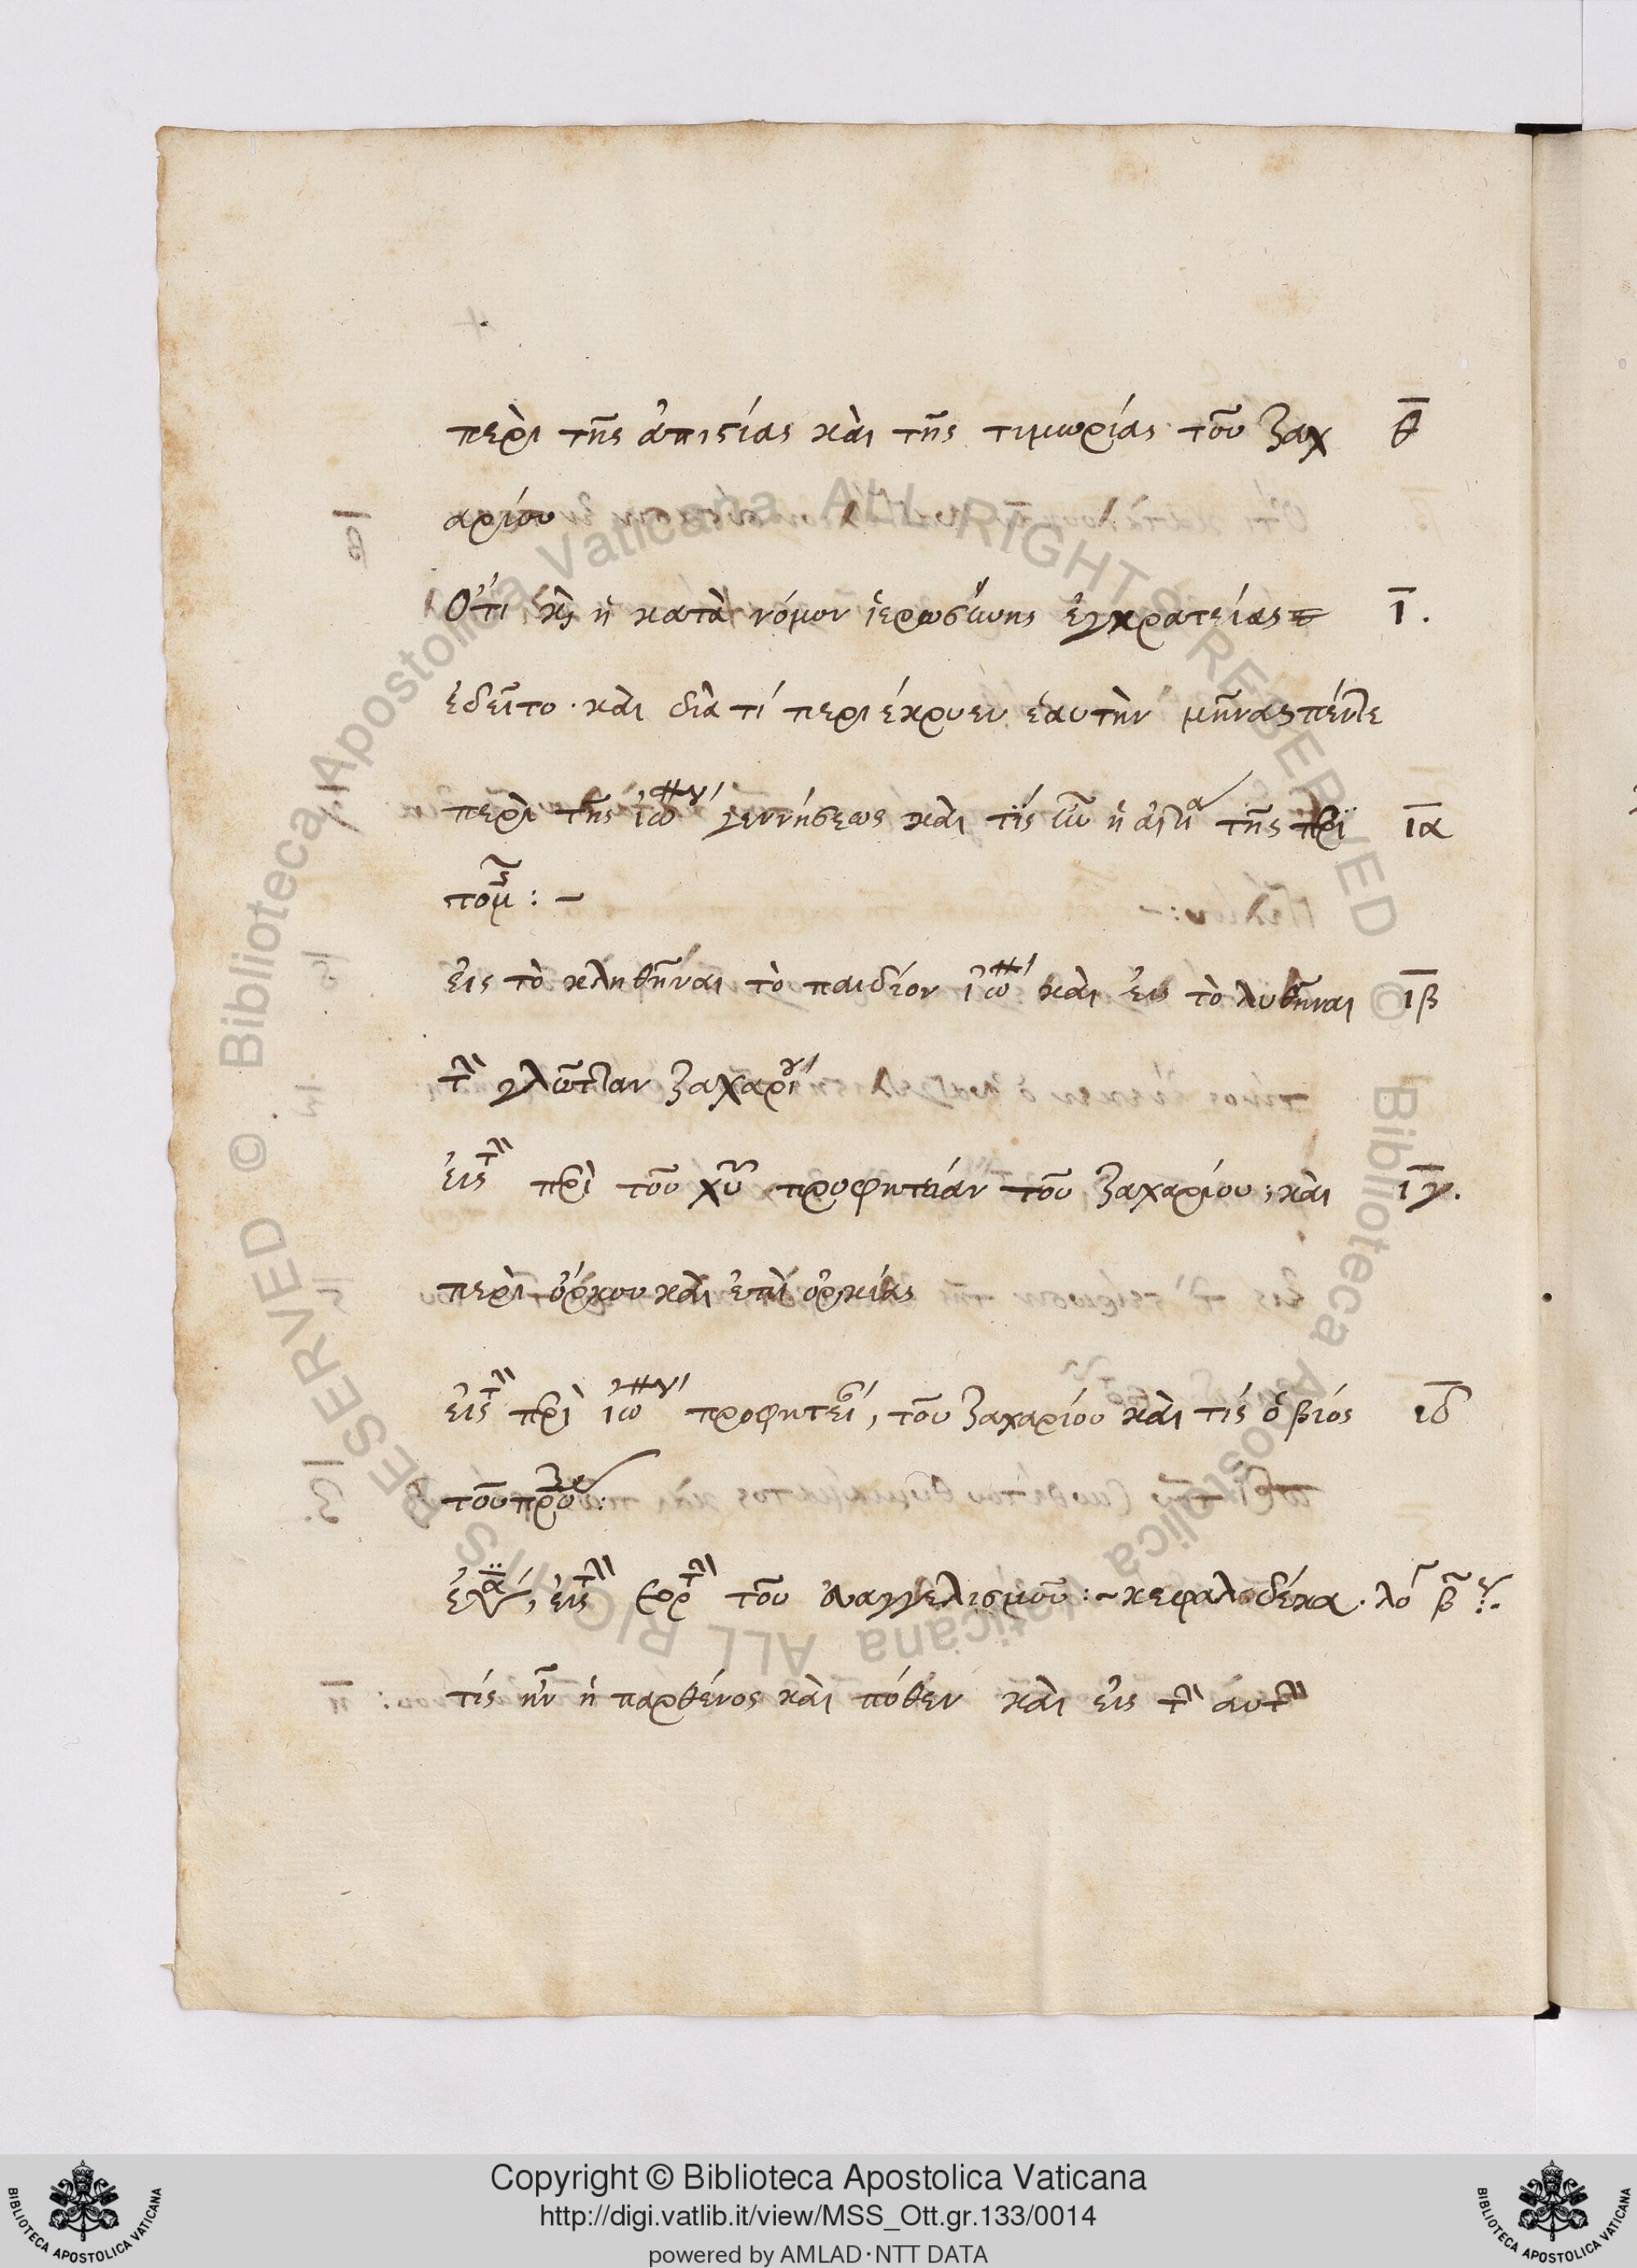 περὶ τῆς ἀπιστίας καὶ τῆς τιμωρίας τοῦ Ζαχ θ̅
αρίου
Ὅτι καὶ ἡ κατὰ νόμον ἱερωσύνης ἐγκρατείας ι̅.
ἐδεῖτο · καὶ διὰ τί περιέκρυεν ἑαυτὴν μῆνας πέντε
περὶ τῆς ἰω γεννήσεως καὶ τίς ἡ τῆς περι ια̅
τομῆς : –
εἰς τὸ κληθῆναι τὸ παιδίον ἰω καὶ εἰς τὸ λυθῆναι ιβ̅
τὴν γλῶτταν Ζαχαρίου
εἰς τὴν περὶ τοῦ χυ προφητείαν τοῦ Ζαχαρίου, καὶ ιγ̅.
περὶ ὅρκου καὶ ἐπιορκίας
εἰς τὴν περὶ ἰω προφητεί, τοῦ Ζαχαρίου καὶ τίς ὁ βίος ιδ̅
τοῦ
εἰς τὴν τοῦ εὐαγγελισμοῦ : ~ κεφαλ δέκα · λό β
τίς ἦν ἡ παρθένος καὶ πόθεν καὶ εἰς τὴν αὐτὴν
Copyright © Biblioteca Apostolica Vaticana
http://digi.vatlib.it/view/MSS_Ott.gr.133/0014
powered by AMLAD·NTT DATA
BIBLIOTECA APOSTOLICA VATICANA
BIBLIOTECA APOSTOLICA VATICANA
Biblioteca Apostolica Vaticana ALL RIGHTS RESERVED ©
Biblioteca Apostolica Vaticana ALL RIGHTS RESERVED ©